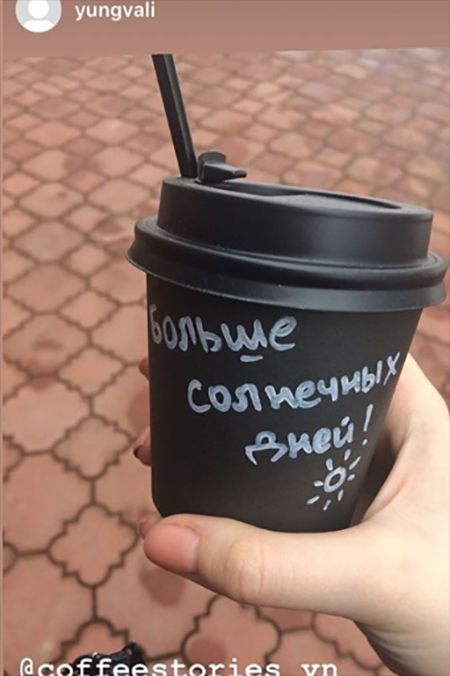 yungvali
Больше
солнечных
дней!
@coffeestories_vn